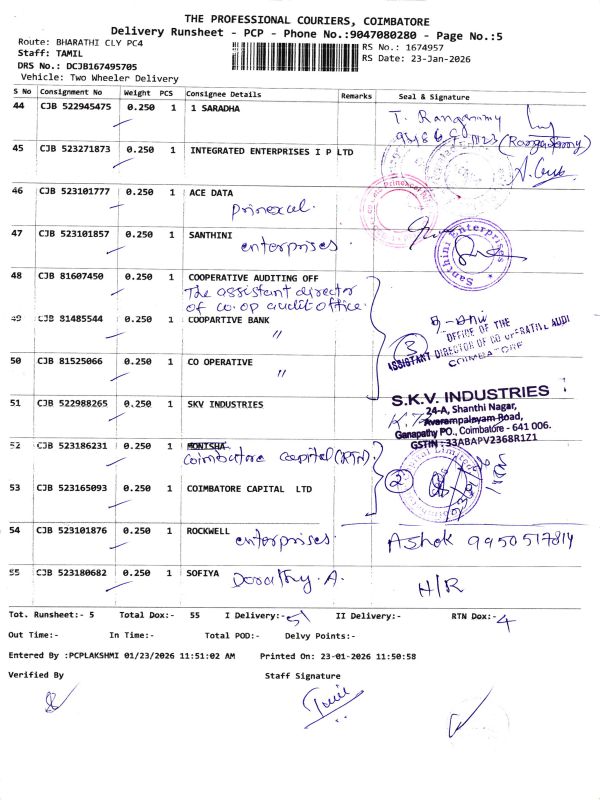 THE PROFESSIONAL COURIERS, COIMBATORE
Delivery Runsheet - PCP - Phone No.:9047080280 - Page No.:5
Route: BHARATHI CLY PC4
RS No.: 1674957
Staff: TAMIL
RS Date: 23-Jan-2026
DRS No.: DCJB167495705
Vehicle: Two Wheeler Delivery
S No Consignment No Weight PCS Consignee Details Remarks Seal & Signature
44 CJB 522945475 0.250 1 1 SARADHA
T. Rangasamy
(Rangasamy)
45 CJB 523271873 0.250 1 INTEGRATED ENTERPRISES I P LTD
46 CJB 523101777 0.250 1 ACE DATA
Prinexcel.
47 CJB 523101857 0.250 1 SANTHINI
enterprises
Santhini Enterprises
48 CJB 81607450 0.250 1 COOPERATIVE AUDITING OFF
The assistant director
of co.op audit office.
49 CJB 81485544 0.250 1 COOPARTIVE BANK
"
3
OFFICE OF THE
ASSISTANT DIRECTOR OF CO OPERATIVE AUDI
COIMBATORE
50 CJB 81525066 0.250 1 CO OPERATIVE
"
51 CJB 522988265 0.250 1 SKV INDUSTRIES
S.K.V. INDUSTRIES
24-A, Shanthi Nagar,
Avarampalayam Road,
Ganapathy PO., Coimbatore - 641 006.
GSTIN : 33ABAPV2368R1Z1
52 CJB 523186231 0.250 1 MONISHA
Coimbatore capital (RTN)
2
53 CJB 523165093 0.250 1 COIMBATORE CAPITAL LTD
54 CJB 523101876 0.250 1 ROCKWELL
enterprises.
Ashok 9950517814
55 CJB 523180682 0.250 1 SOFIYA
Dorathy. A.
H/R
Tot. Runsheet:- 5 Total Dox:- 55 I Delivery:- 51 II Delivery:- RTN Dox:- 4
Out Time:- In Time:- Total POD:- Delvy Points:-
Entered By :PCPLAKSHMI 01/23/2026 11:51:02 AM Printed On: 23-01-2026 11:50:58
Verified By Staff Signature